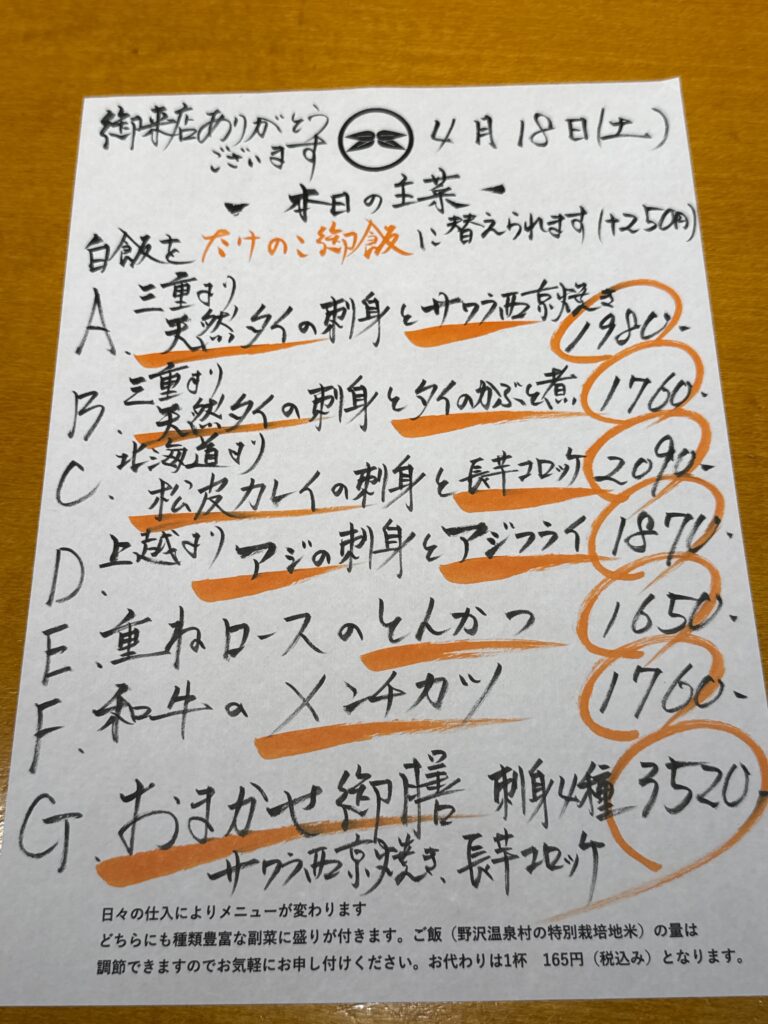 御来店ありがとう
ございます
4月18日(土)
本日の主菜
白飯をたけのこ御飯に替えられます(+250円)
A. 三重より
天然タイの刺身とサワラ西京焼き 1980.-
B. 三重より
天然タイの刺身とタイのかぶと煮 1760.-
C. 北海道より
松皮カレイの刺身と長芋コロッケ 2090.-
D. 上越より アジの刺身とアジフライ 1870.-
E. 重ねロースのとんかつ 1650.-
F. 和牛のメンチカツ 1760.-
G. おまかせ御膳 刺身4種 3520.-
サワラ西京焼き、長芋コロッケ
日々の仕入によりメニューが変わります
どちらにも種類豊富な副菜に盛りが付きます。ご飯(野沢温泉村の特別栽培地米)の量は
調節できますのでお気軽にお申し付けください。お代わりは1杯 165円(税込み)となります。